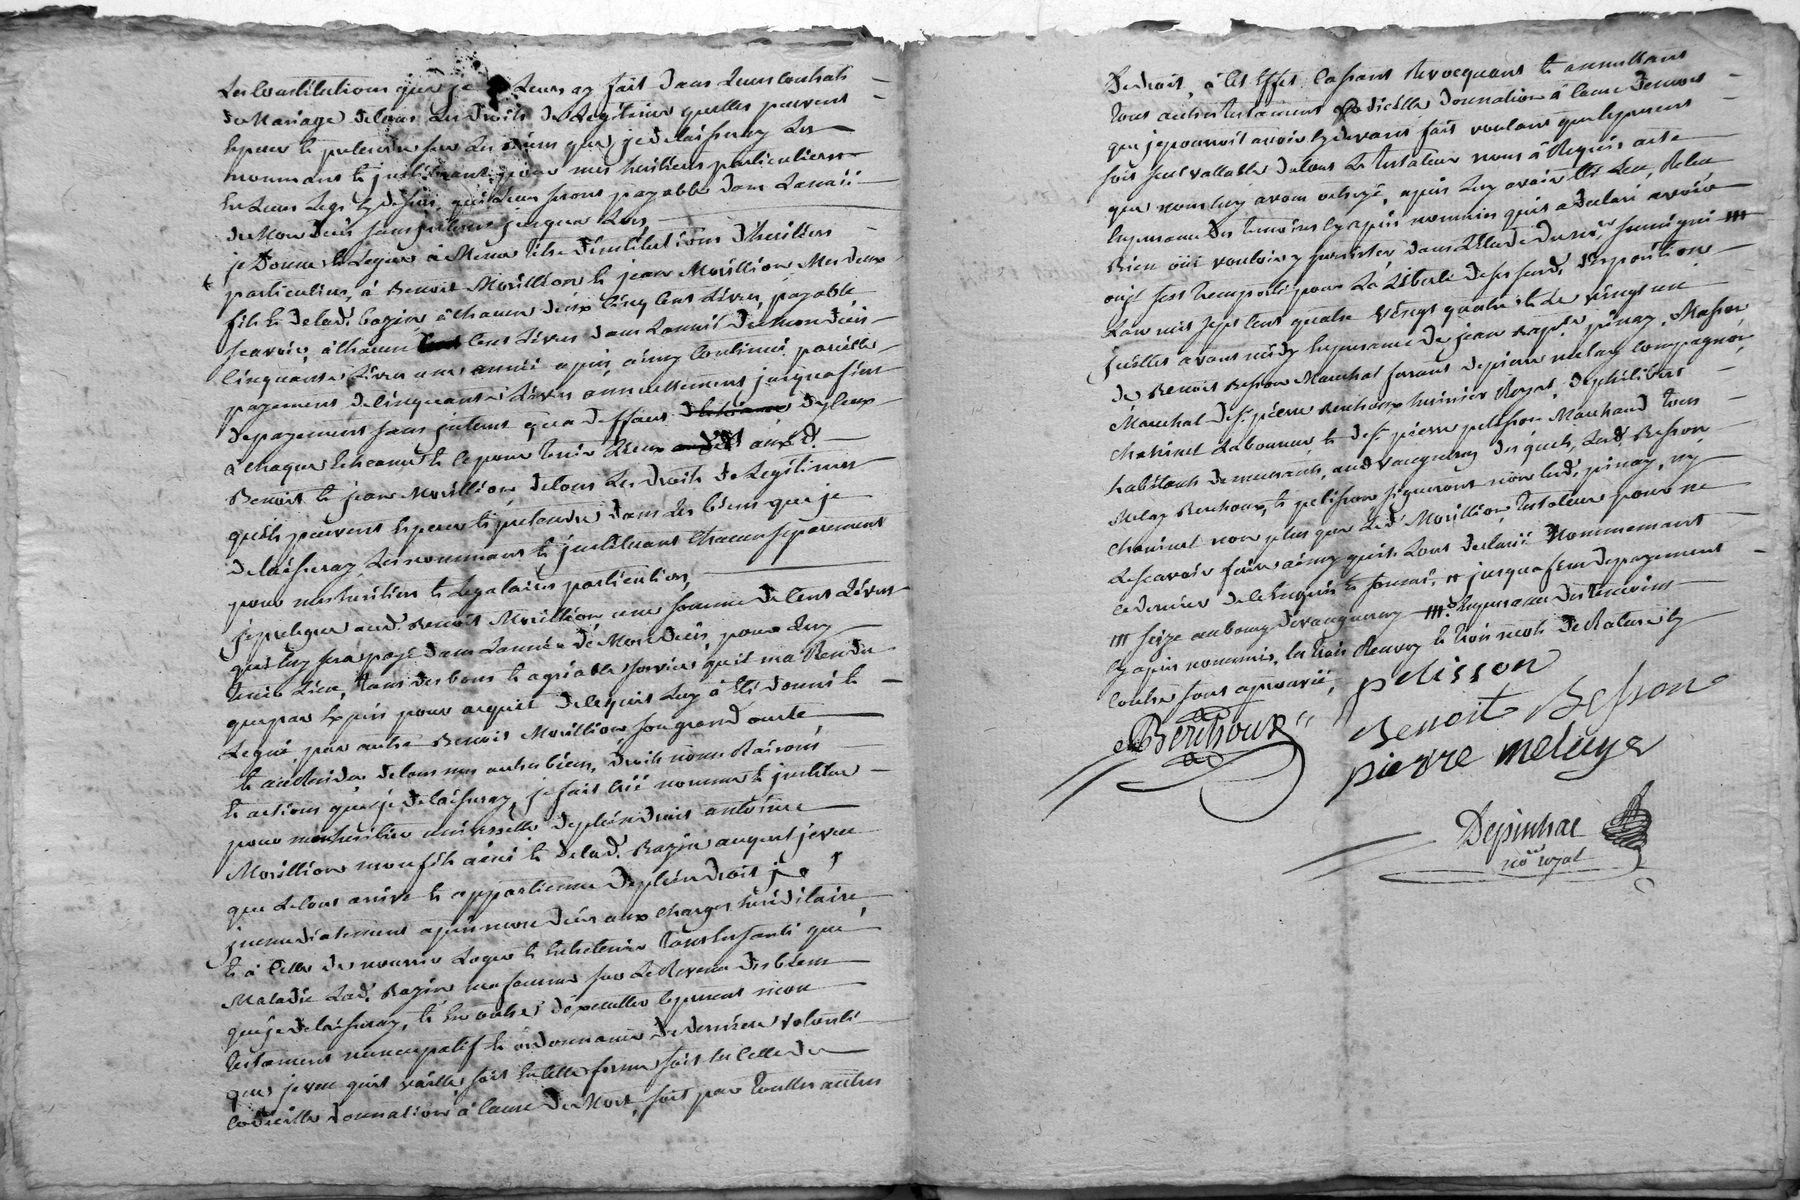 Les Constitutions que je Leurs ay fait dans Leurs Contrats
de Mariage de tous Les droits de Legitime quelles peuvent
Esperer et pretendre sur Les biens que je delaisseray Les
nommant et instituant pour mes heritiers particuliers
En Leurs Legs cy dessus, quil Leurs seront payable dans Lannéé
de Mon deces sans interest jusqua Lors,
je Donne et Legue a Meme titre dinstitutions dheritiers
particuliers, á Benoit Morillion et jean Morillion Mes deux
fils et de lad. bazin á chacun deux Cinq Cent Livres, payable
scavoir, á chacun Cent Livres dans Lannéé de mon deces
Cinquante Livres une annéé apres, ainsy Continuer pareille
payement de Cinquante Livres annuellement jusqua fin
de payement sans interest qua deffaut de payement
á chaque Echeance et ce pour tenir Lieux auxd.
Benoit et jean Morillion de tous Les droits de Legitimes
quils peuvent Esperer et pretendre dans Les biens que je
delaisseray, Les nommant et instituant Chacun separement
pour mes heritiers et Legataires particuliers,
je prelegue aud. Benoit Morillion une somme de Cent Livres
qui Luy sera payé dans Lannéé de Mon deces, pour Luy
tenir Lieu, tant des bons et agréable services quil ma Rendu
que par Exprés pour acquit de Legat Luy á été donné et
Legué, par autre Benoit Morillion, son grand oncle
et au Residu de tous mes autres biens, droits noms Raisons
et actions que je delaisseray, je fait Créé nomme et institue
pour mon heritier universelle de plein droit antoine
Morillion mon fils ainé et de lad. Bazin auquel je veu
que Le tout arrive et appartienne de plein droit
immediatement apres mon deces aux charges hereditaire,
et á Celle de nourrir Loger et Entretenir tant En santé que
Maladie Lad. Bazin ma femme sur Le Revenu des biens
que je delaisseray, et En outre dexecuter le present mon
testament nuncupatif et ordonnance de derniere volonté
que je veu quil vaille soit En cette forme soit En Celle de
Codicille donnation á Cause de Mort, soit par toutes autres
de droit, á Cet Effet Cassant Revocquant et annullant
tous autres testament Codicille donnation á Cause de mort
que je pourroit avoir cy devant fait voulant que le present
soit seul vallable de tous Le testateur nous á Requis acte
que nous Luy avons octroyé, apres Luy avoir été Leu, Releu
En presence des temoins cy apres nommés quil a declaré avoir
Bien oui vouloir y persister dans Létude du not. soussigné
ou il sest transporté pour La Liberté de ses sus d. disposition
Lan mil sept Cent quatre Vingt quatre et Le vingt un
juillet avant midy En presence de jean Bapt. pinay, Masson
de Benoit Besson Marechal ferrant de pierre melay Compagnon
Marechal de s. pierre Berthoux huissier Royal, de philibert
Chavinet Laboureur, et de s. pierre pelisson Marchand tous
habitants de, aud Vaugneray desquels, Led. Besson
Melay Berthoux, et pelisson signeront non Led. pinay, ny
Chavinet non plus que Led. Morillion testateur pour ne
Le scavoir faire ainsy quils Lont declaré Nommement
Ce dernier de ce Enquis et sommé, jusqua fin de payement
Seize au bourg de vaugneray En presence des temoins
cy apres nommés, les trois Renvoy et trois mots de Rature cy
Contre sont aprouvé,
pelisson
Berthoux
Benoit Besson
pierre melaye
Depinhac
no.re royal